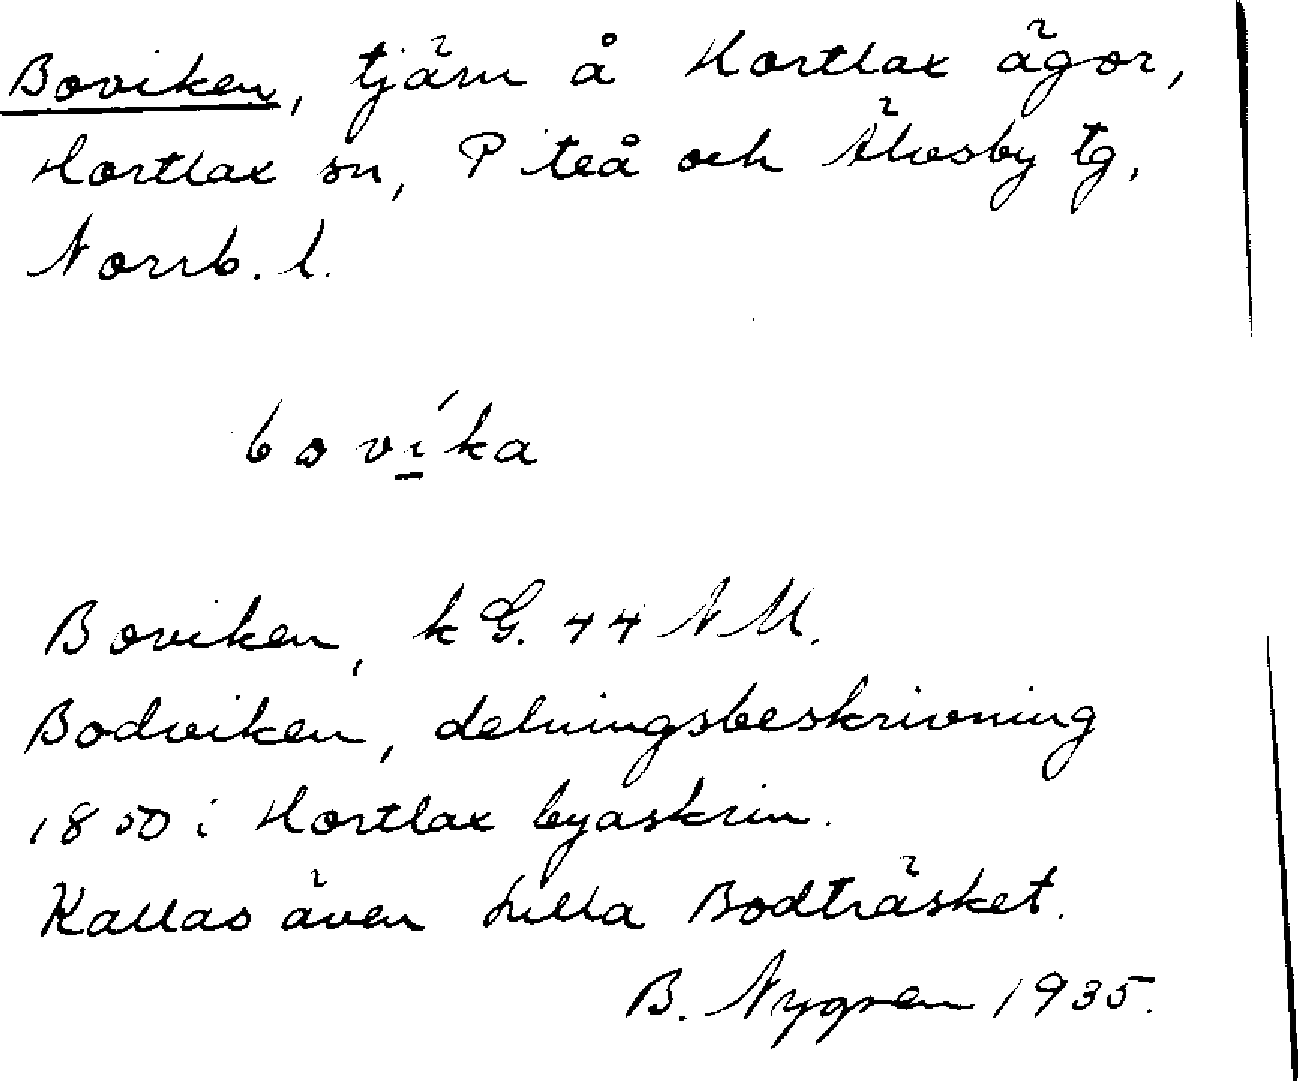 Boviken, tjärn å Hortlax ägor,
Hortlax sn, Piteå och Älvsby tg,
Norrb. l.
boví̱ka
Boviken, kG. 44 NM.
Bodviken, delningsbeskrivning
1850 i Hortlax byaskrin.
Kallas även Lilla Bodträsket.
B. Nygren 1935.